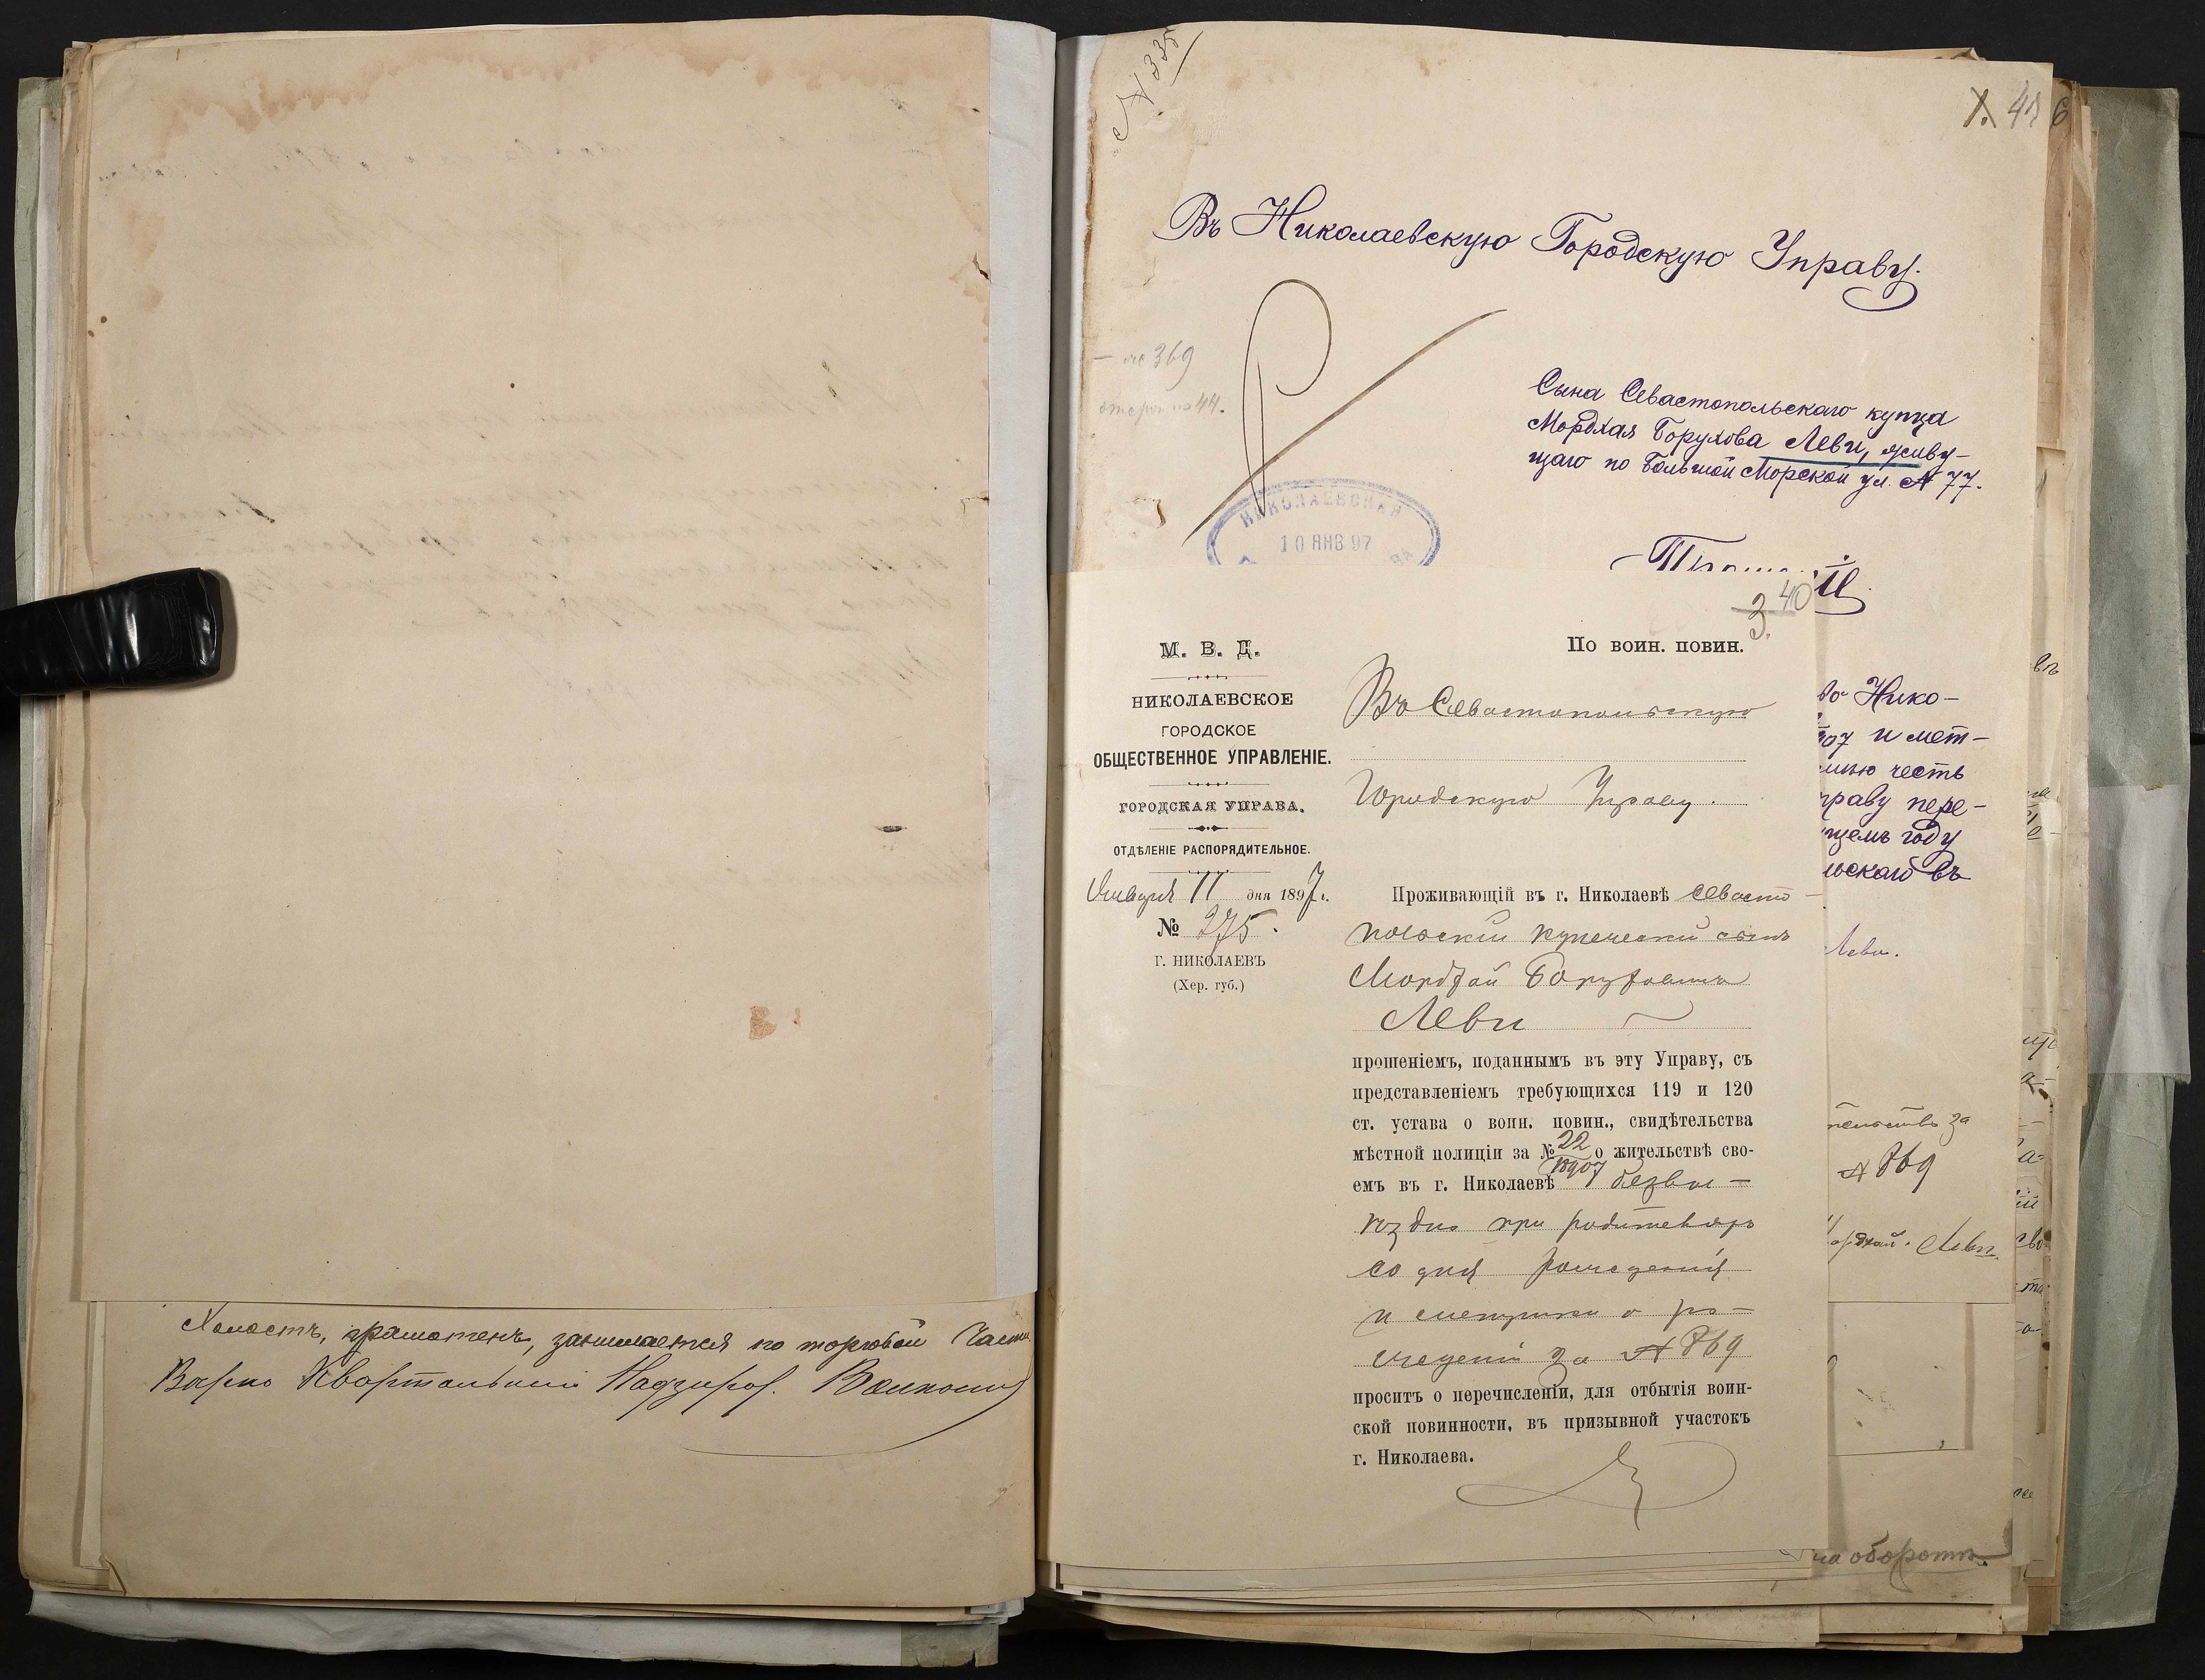 Холостъ, грамотенъ, занимается по торговой части
Верно Квартальный Надзират.
№ 335
1. 41 6
Въ Николаевскую Городскую Управу.
№ 369
44.
Сына Севастопольскаго купца
Мордхая Борухова Леви, живу-
щаго по Большой Морской ул. № 77.
НИКОЛАЕВСКАЯ
10 ЯНВ 97
во Нико-
907 и мет-
имѣю честь
праву пере-
щемъ году
ьскаго въ
Леви.
за
№ 869
Мордхай Леви.
на оборотѣ.
3. 40
М. В. Д.
НИКОЛАЕВСКОЕ
ГОРОДСКОЕ
ОБЩЕСТВЕННОЕ УПРАВЛЕНІЕ.
ГОРОДСКАЯ УПРАВА.
ОТДѢЛЕНІЕ РАСПОРЯДИТЕЛЬНОЕ.
Января 11 дня 1897 г.
№ 275.
Г. НИКОЛАЕВЪ
(Хер. губ.)
По воин. повин.
Въ Севастопольскую
Городскую Управу.
Проживающій въ г. Николаевѣ Севасто-
польскій купеческій сынъ
Мордхай Боруховичъ
Леви
прошеніемъ, поданнымъ въ эту Управу, съ
представленіемъ требующихся 119 и 120
ст. устава о воин. повин., свидѣтельства
мѣстной полиціи за № 22/18907 о жительствѣ сво-
емъ въ г. Николаевѣ безвы-
ѣздно при родителяхъ
со дня рожденія
и метрики о ро-
жденіи за № 869
проситъ о перечисленіи, для отбытія воин-
ской повинности, въ призывной участокъ
г. Николаева.